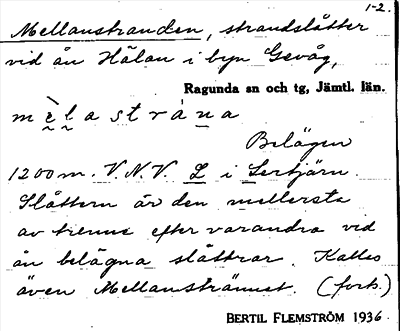 1-2.
Mellanstranden, strandslåtter
vid ån Hälan i byn Gevåg,
Ragunda sn och tg, Jämtl. län.
mèlastrána
Belägen
1200 m. V.N.V. L i Sertjärn.
Slåttern är den mellersta
av tienne efter varandra vid
ån belägna slåttrar. Kallas
även Mellanstrännet. (forts.)
BERTIL FLEMSTRÖM 1936